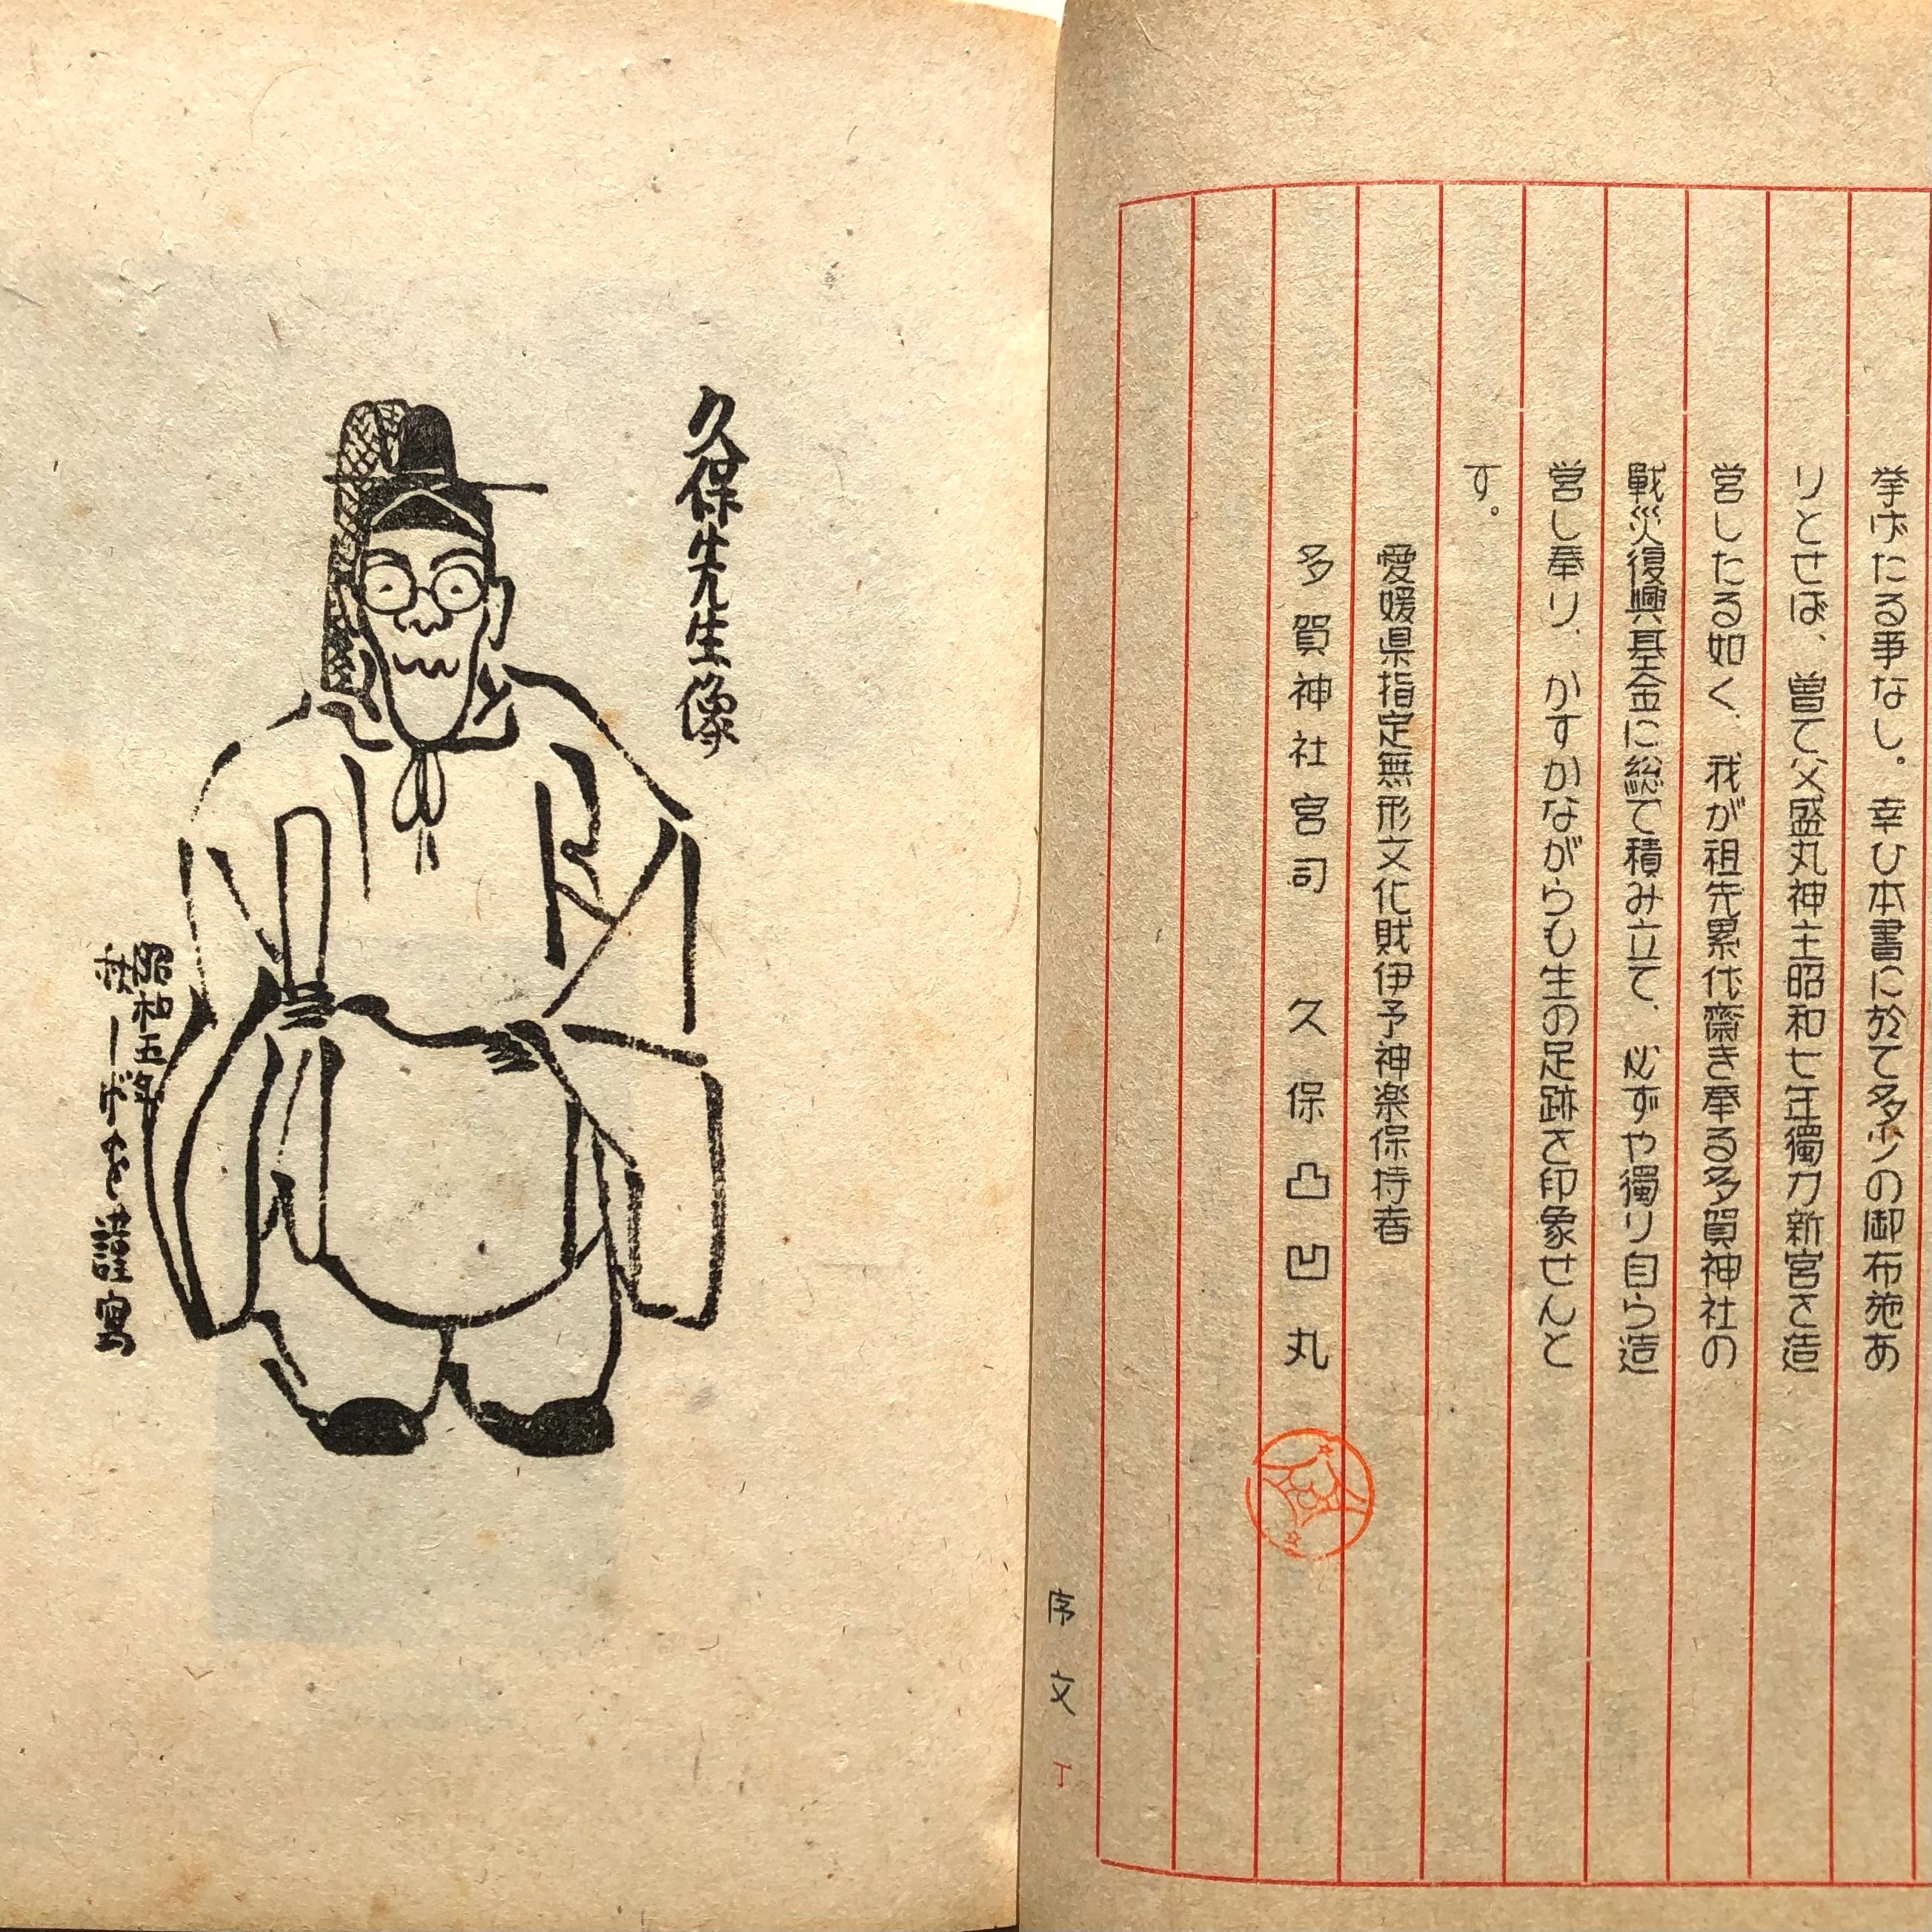 挙げたる事なし。幸ひ本書に於て多少の御布施あ
りとせば、曽て父盛丸神主昭和七年獨力新宮を造
営したる如く、我が祖先累代齋き奉る多賀神社の
戰災復興基金に総て積み立て、必ずや獨り自ら造
営し奉り、かすかながらも生の足跡を印象せんと
す。
愛媛県指定無形文化財伊予神楽保持者
多賀神社宮司 久保凸凹丸
序文
丁
久保先生像
昭和五年
秋 しげを謹寫